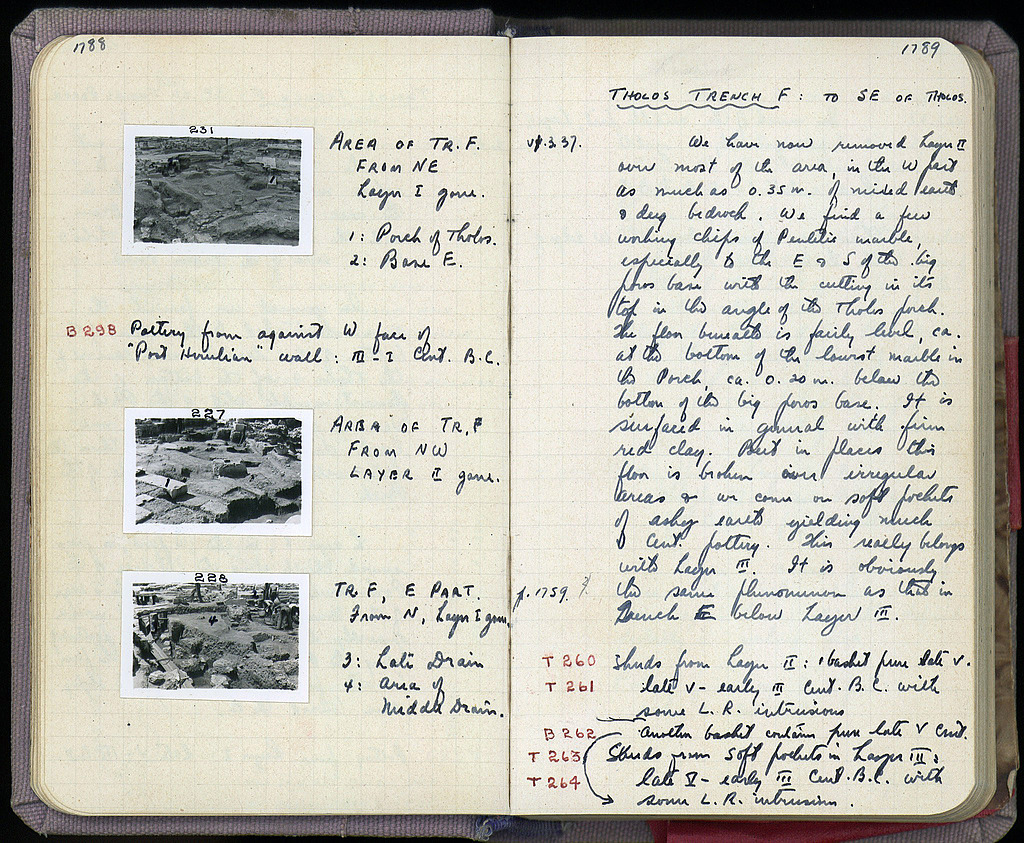 1788
231
AREA OF TR. F.
FROM NE
Layer I gone.
1: Porch of Tholos.
2: Base E.
B 298 Pottery from against W face of
"Post Herulian" wall: III-I Cent. B.C.
227
AREA OF TR. F
FROM NW
LAYER II gone.
228
4
TR F, E PART.
From N, Layer I gone.
3: Late Drain
4: Area of
Middle Drain.
1789
THOLOS TRENCH F: TO SE OF THOLOS.
3.37. We have now removed Layer II
over most of the area, in the W part
as much as 0.35 m. of mixed earth
& dug bedrock. We find a few
working chips of Pentelic marble,
especially to the E & S of the big
poros base with the cutting in its
top in the angle of the Tholos porch.
The floor beneath is fairly level, ca.
at the bottom of the lowest marble in
the Porch, ca. 0.20 m. below the
bottom of the big poros base. It is
surfaced in general with firm
red clay. But in places this
floor is broken over irregular
areas & we come on soft pockets
of ashy earth yielding much
Cent. pottery. This really belongs
with Layer III. It is obviously
p. 1759. the same phenomenon as that in
Trench below Layer III.
T 260 Sherds from Layer II: 1 basket pure late V.
T 261 late V - early III Cent. B.C. with
some L.R. intrusions
B 262 Another basket contains pure late V Cent.
T 263 Sherds from soft pockets in Layer III:
T 264 late V - early III Cent. B.C. with
some L.R. intrusions.